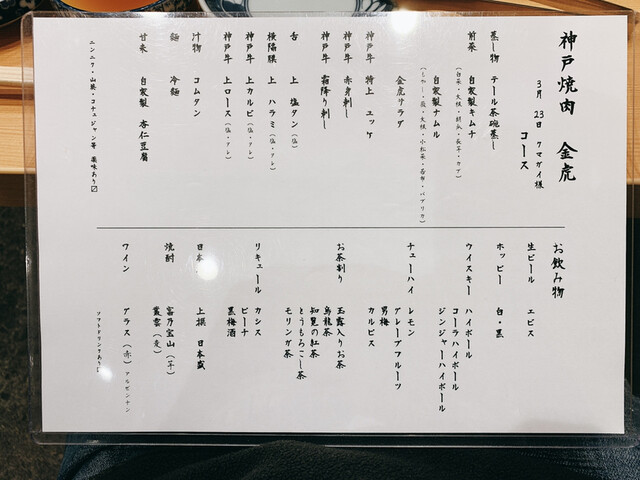 神戸焼肉 金虎
3月 23日 クマガイ様
コース
蒸し物 テール茶碗蒸し
前菜 自家製キムチ
(白菜・大根・胡瓜・長芋・カブ)
自家製ナムル
(もやし・蕨・大根・小松菜・若布・パプリカ)
金虎サラダ
神戸牛 特上 ユッケ
神戸牛 赤身刺し
神戸牛 霜降り刺し
舌 上 塩タン(塩)
横隔膜 上 ハラミ(塩・タレ)
神戸牛 上カルビ(塩・タレ)
神戸牛 上ロース(塩・タレ)
汁物 コムタン
麺 冷麺
甘来 自家製 杏仁豆腐
ニンニク・山葵・コチュジャン等 薬味あり〼
お飲み物
生ビール エビス
ホッピー 白・黒
ウイスキー ハイボール
コーラハイボール
ジンジャーハイボール
チューハイ レモン
グレープフルーツ
男梅
カルピス
お茶割り 玉露入りお茶
烏龍茶
知覧の紅茶
とうもろこし茶
モリンガ茶
リキュール カシス
ピーチ
黒梅酒
日本 上撰 日本盛
焼酎 富乃宝山(芋)
叢雲(麦)
ワイン グラス(赤)アルゼンチン
ソフトドリンクあり〼